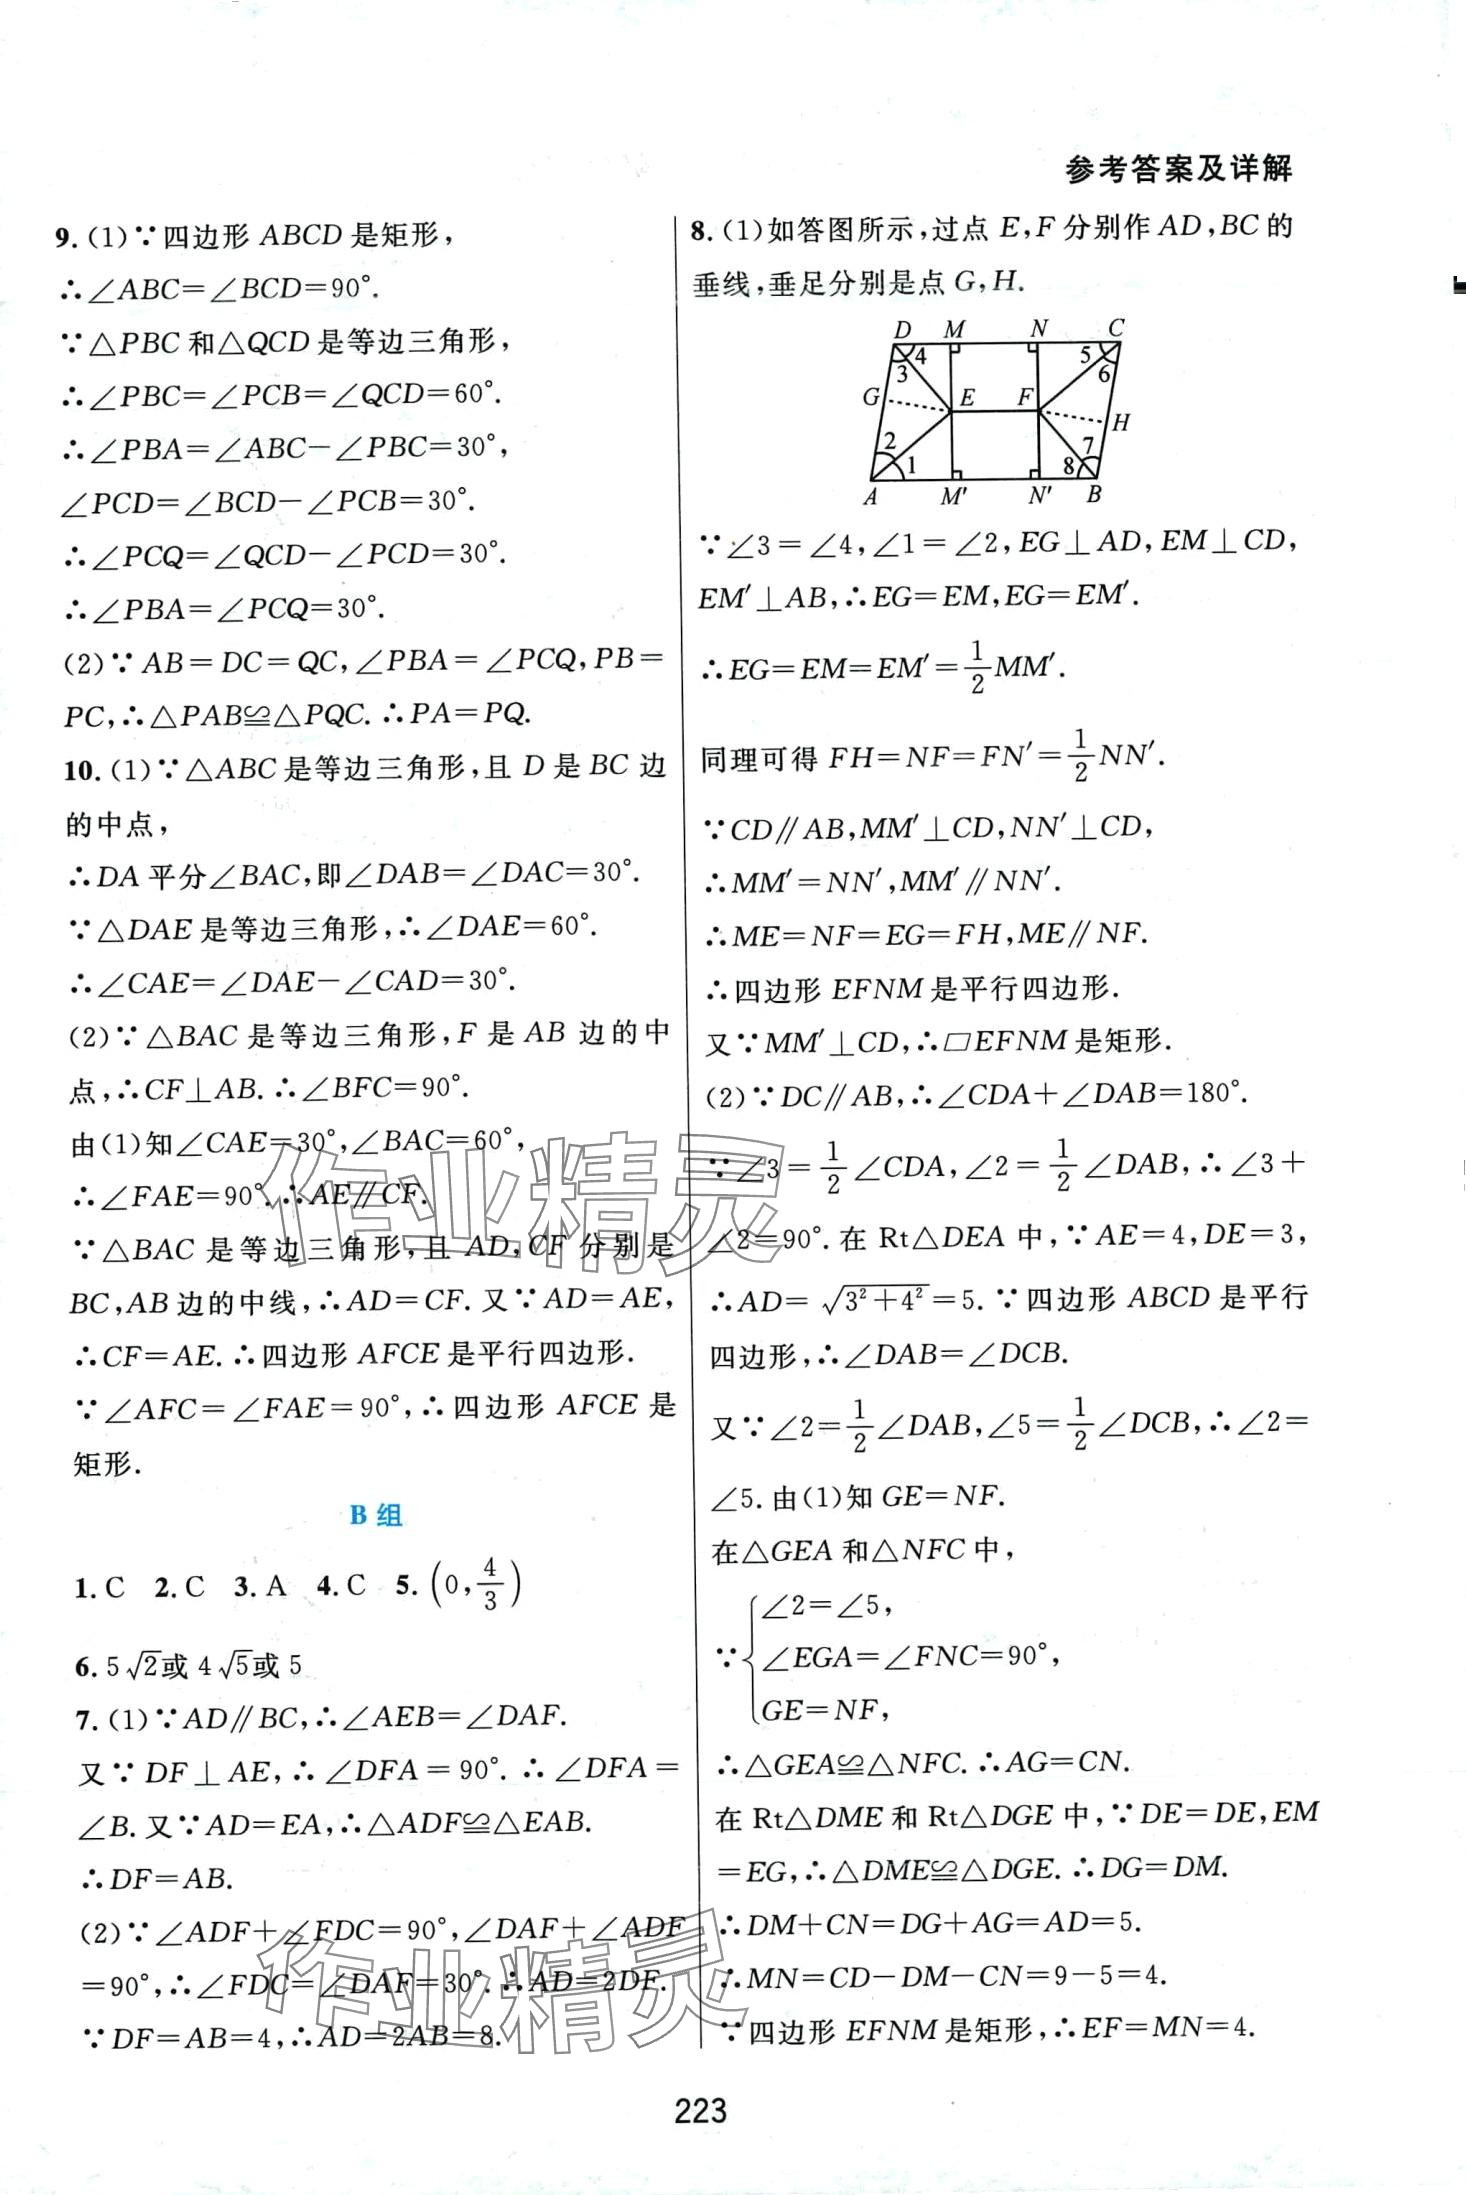 参考答案及详解
9.(1)∵四边形 ABCD 是矩形,
∴∠ABC=∠BCD=90°.
∵△PBC 和△QCD 是等边三角形,
∴∠PBC=∠PCB=∠QCD=60°.
∴∠PBA=∠ABC-∠PBC=30°,
∠PCD=∠BCD-∠PCB=30°.
∴∠PCQ=∠QCD-∠PCD=30°.
∴∠PBA=∠PCQ=30°.
(2)∵AB=DC=QC,∠PBA=∠PCQ,PB=
PC,∴△PAB≌△PQC.∴PA=PQ.
10.(1)∵△ABC 是等边三角形,且 D 是 BC 边
的中点,
∴DA 平分∠BAC,即∠DAB=∠DAC=30°.
∵△DAE 是等边三角形,∴∠DAE=60°.
∴∠CAE=∠DAE-∠CAD=30°.
(2)∵△BAC 是等边三角形,F 是 AB 边的中
点,∴CF⊥AB.∴∠BFC=90°.
由(1)知∠CAE=30°,∠BAC=60°,
∴∠FAE=90°.∴AE∥CF.
∵△BAC 是等边三角形,且 AD,CF 分别是
BC,AB 边的中线,∴AD=CF.又∵AD=AE,
∴CF=AE.∴四边形 AFCE 是平行四边形.
∵∠AFC=∠FAE=90°,∴四边形 AFCE 是
矩形.
B 组
1.C 2.C 3.A 4.C 5.(0,4/3)
6.5√2或 4√5或 5
7.(1)∵AD∥BC,∴∠AEB=∠DAF.
又∵DF⊥AE,∴∠DFA=90°.∴∠DFA=
∠B.又∵AD=EA,∴△ADF≌△EAB.
∴DF=AB.
(2)∵∠ADF+∠FDC=90°,∠DAF+∠ADF
=90°,∴∠FDC=∠DAF=30°.∴AD=2DF.
∵DF=AB=4,∴AD=2AB=8.
8.(1)如答图所示,过点 E,F 分别作 AD,BC 的
垂线,垂足分别是点 G,H.
D M N C
4 5
3 6
G E F
H
2 7
1 8
A M' N' B
∵∠3=∠4,∠1=∠2,EG⊥AD,EM⊥CD,
EM′⊥AB,∴EG=EM,EG=EM′.
∴EG=EM=EM′=1/2 MM′.
同理可得 FH=NF=FN′=1/2 NN′.
∵CD∥AB,MM′⊥CD,NN′⊥CD,
∴MM′=NN′,MM′∥NN′.
∴ME=NF=EG=FH,ME∥NF.
∴四边形 EFNM 是平行四边形.
又∵MM′⊥CD,∴▱EFNM 是矩形.
(2)∵DC∥AB,∴∠CDA+∠DAB=180°.
∵∠3=1/2∠CDA,∠2=1/2∠DAB,∴∠3+
∠2=90°.在 Rt△DEA 中,∵AE=4,DE=3,
∴AD=√(3²+4²)=5.∵四边形 ABCD 是平行
四边形,∴∠DAB=∠DCB.
又∵∠2=1/2∠DAB,∠5=1/2∠DCB,∴∠2=
∠5.由(1)知 GE=NF.
在△GEA 和△NFC 中,
∠2=∠5,
∵{∠EGA=∠FNC=90°,
GE=NF,
∴△GEA≌△NFC.∴AG=CN.
在 Rt△DME 和 Rt△DGE 中,∵DE=DE,EM
=EG,∴△DME≌△DGE.∴DG=DM.
∴DM+CN=DG+AG=AD=5.
∴MN=CD-DM-CN=9-5=4.
∵四边形 EFNM 是矩形,∴EF=MN=4.
作业精灵
作业精灵
223